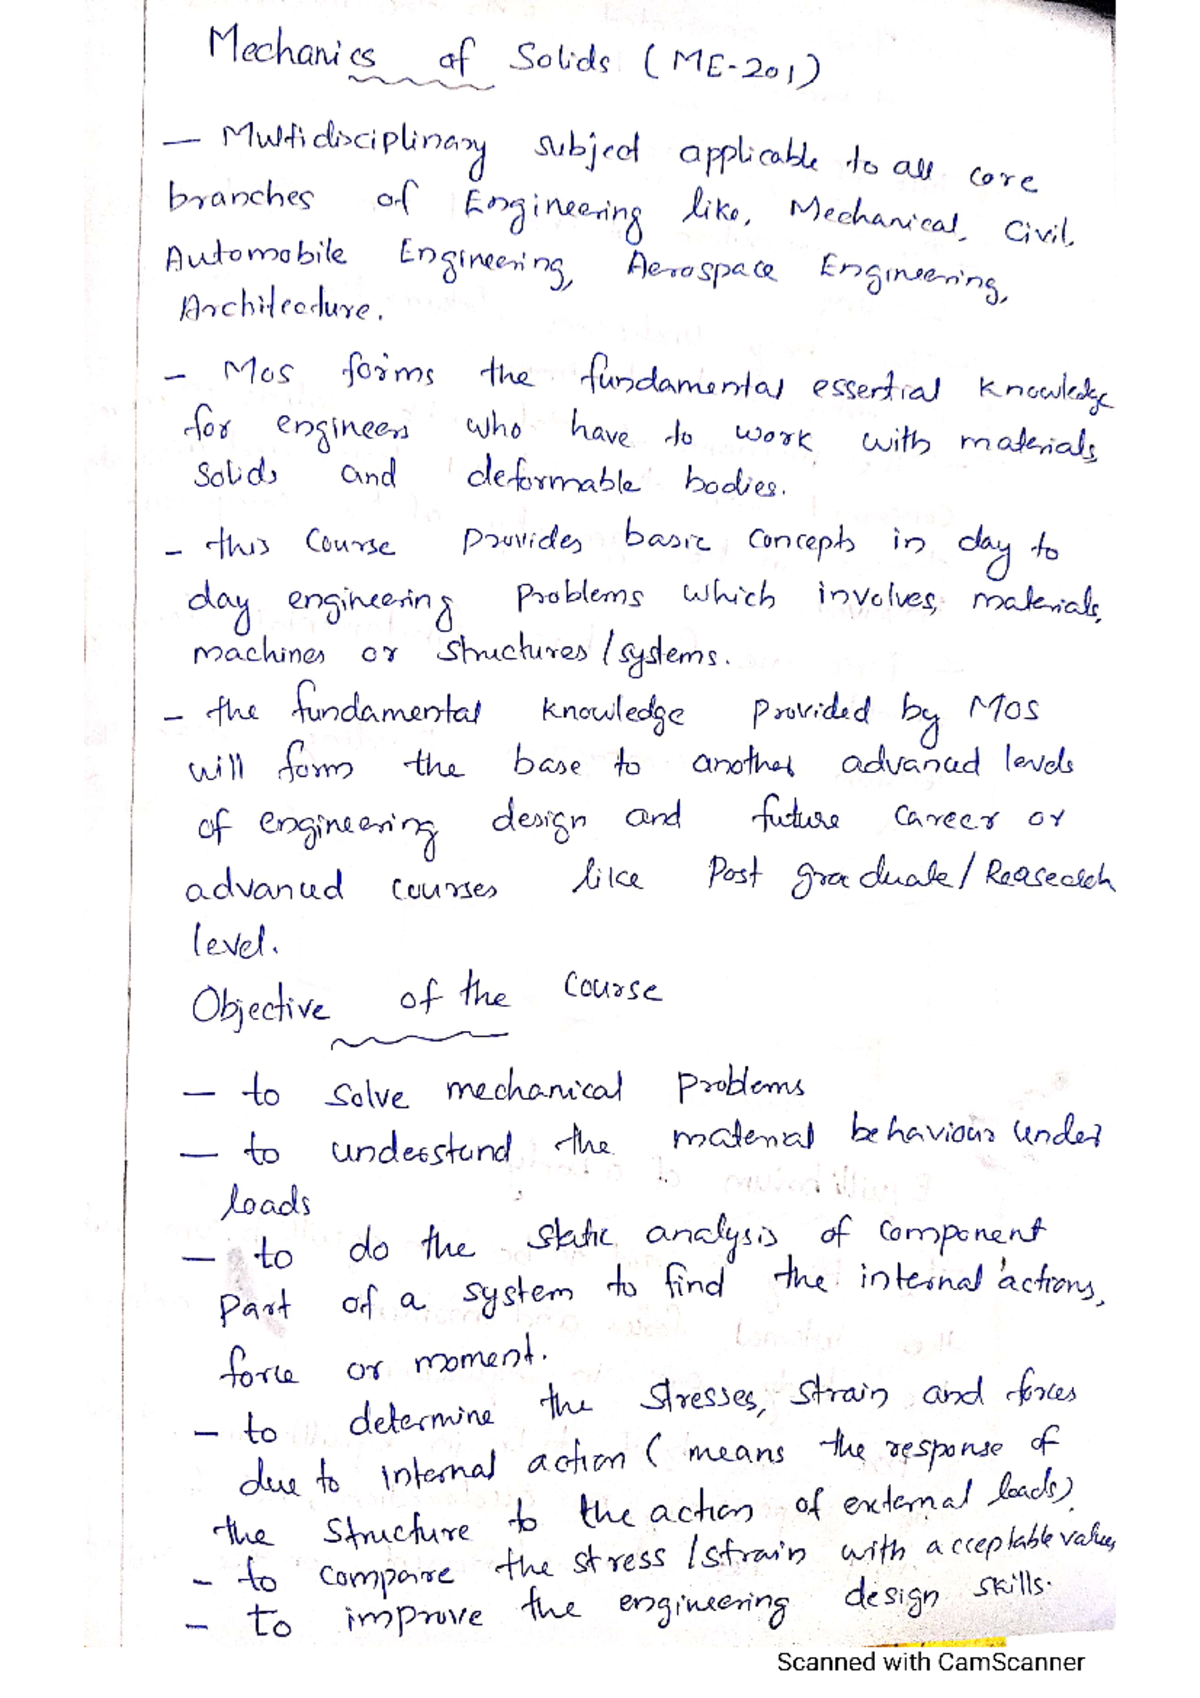 Mechanics of Solids (ME-201)
— Multidisciplinary subject applicable to all core
branches of Engineering like, Mechanical, Civil,
Automobile Engineering, Aerospace Engineering,
Architecture.
- MOS forms the fundamental essential knowledge
for engineers who have to work with materials,
Solids and deformable bodies.
- this Course provides basic concepts in day to
day engineering problems which involves, materials,
machines or structures/systems.
- the fundamental knowledge provided by MOS
will form the base to another advanced levels
of engineering design and future career or
advanced courses like Post graduate/Reasearch
level.
Objective of the Course
— to solve mechanical problems
— to understand the material behaviour under
loads
— to do the static analysis of component
part of a system to find the internal actions,
force or moment.
- to determine the stresses, strain and forces
due to internal action (means the response of
the structure to the action of external loads)
- to compaire the stress/strain with acceptable values
- to improve the engineering design skills.
Scanned with CamScanner